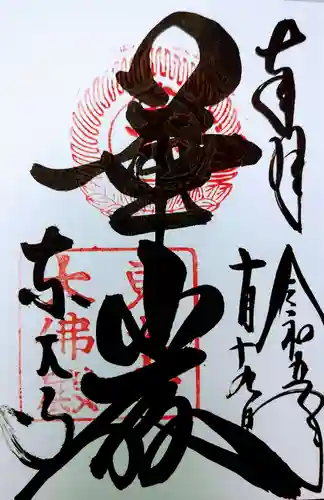 奉拝
令和五年
十月十九日
華厳
東大寺
東大寺
大佛殿